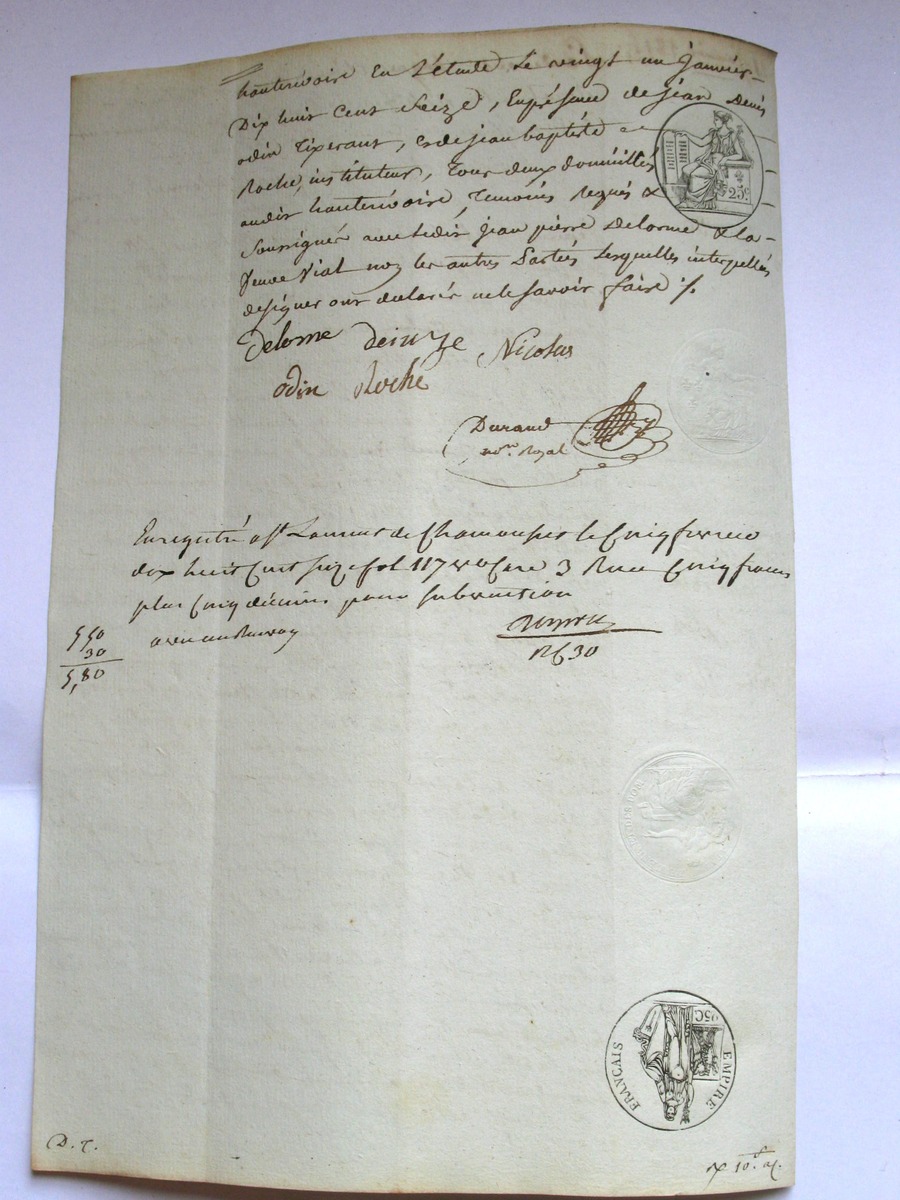 hauterivoire En l'étude Le vingt un Janvier
Dix huit cent Seize, En présence de jean Denis
odin Tixerant, & de jean baptiste
Roche, instituteur, Tous deux domiciliés
audit hauterivoire, Temoins Requis &
Soussignés avec ledit jean pierre Delorme & la
Veuve Vial non les autres Parties Lesquelles interpellés
de signer ont declarés ne le savoir faire ./.
25c
delorme Nicolas
odin Roche
Durand
no.re Royal
Enregistré a St Laurent de Chamousset le Cinq fevrier
dix huit Cent Seize fol 117 vo Case 3 Recu Cinq francs
plus Cinq décimes pour subvention
550
30
5,80
R 30
EMPIRE FRANCAIS
D. T.